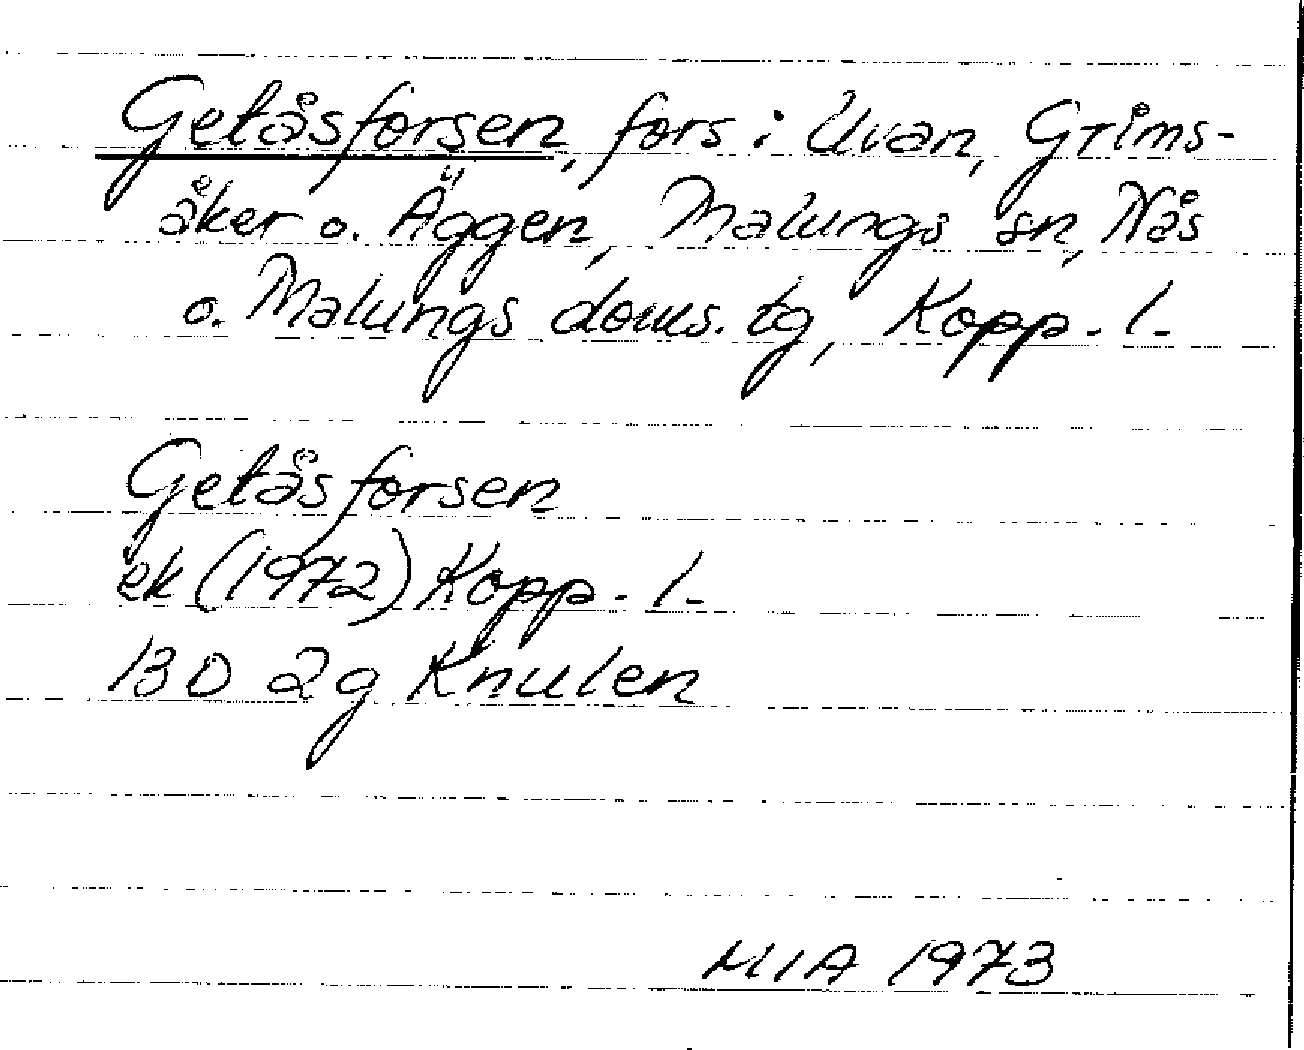 Getåsforsen, fors i Uvan, Grims-
åker o. Äggen, Malungs sn, Nås
o. Malungs doms. tg, Kopp. l.
Getåsforsen
ek (1972) Kopp. l.
13D 2g Knulen
MIA 1973